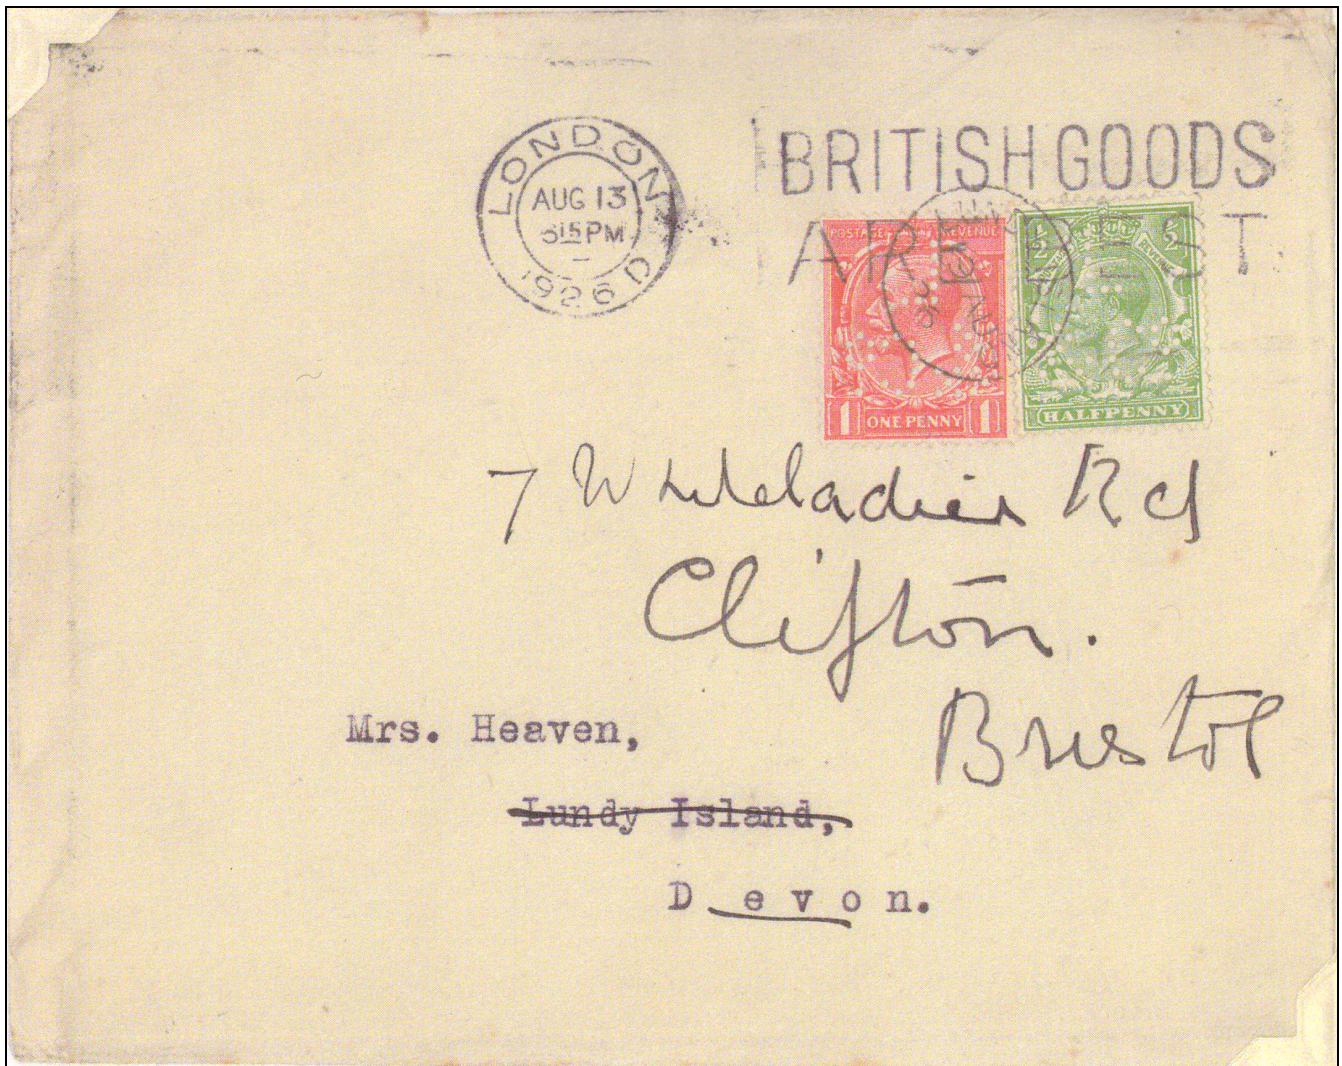 LONDON
AUG 13
615PM
1926 D
BRITISH GOODS
ARE BEST
POSTAGE REVENUE
1 ONE PENNY 1
½ ½
HALFPENNY
7 Whiteladies Rd
Clifton.
Bristol
Mrs. Heaven,
Lundy Island,
Devon.